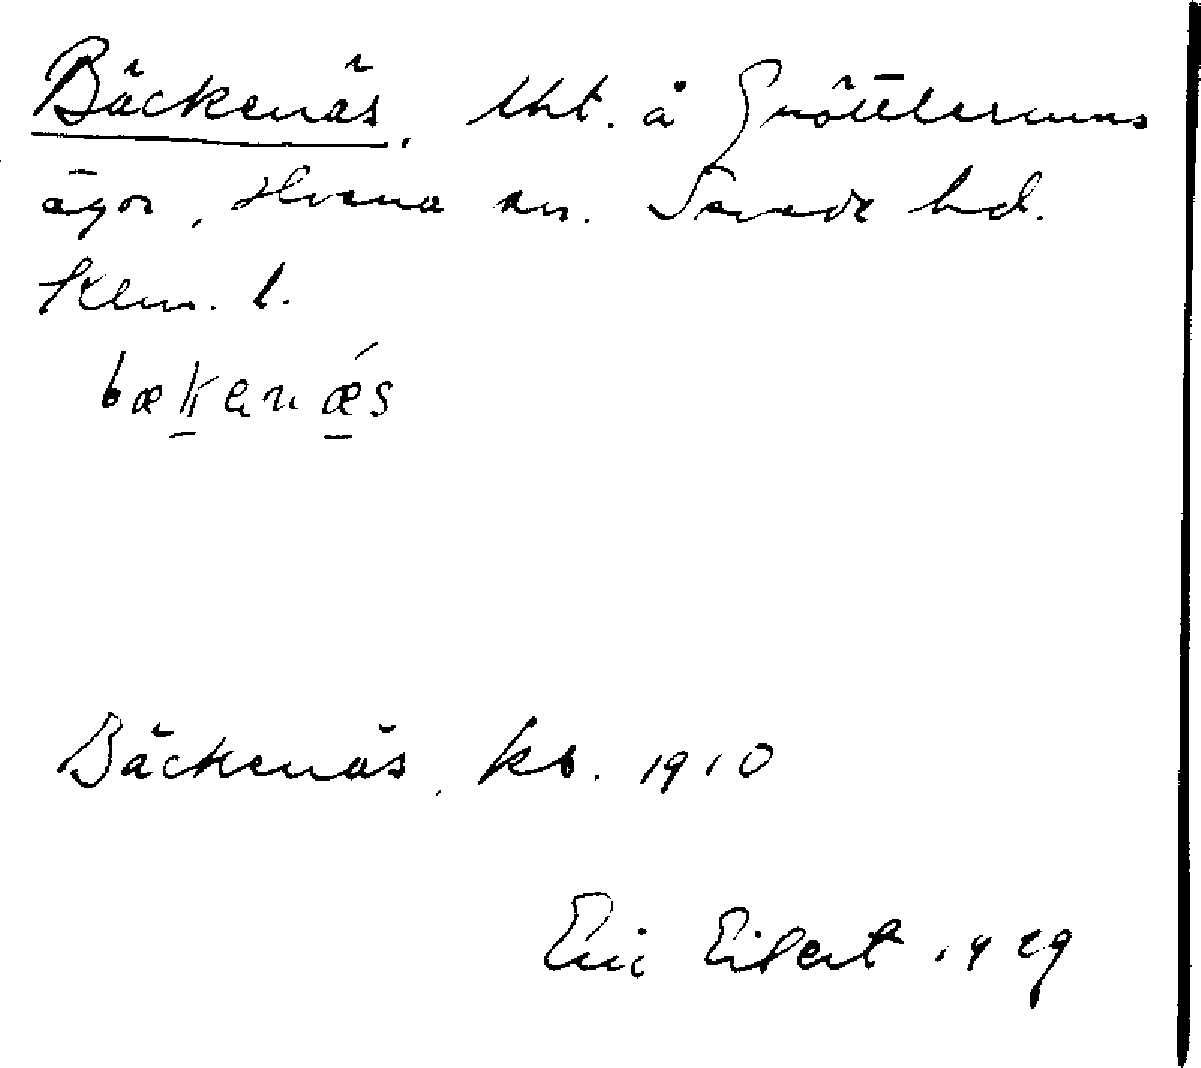 Bäckenäs, lht. å Gnöttelerums
ägor, Hvena sn. Sevede hd.
Klm. l.
bækenǽs
Bäckenäs, kb. 1910
Eric Eilert 1929